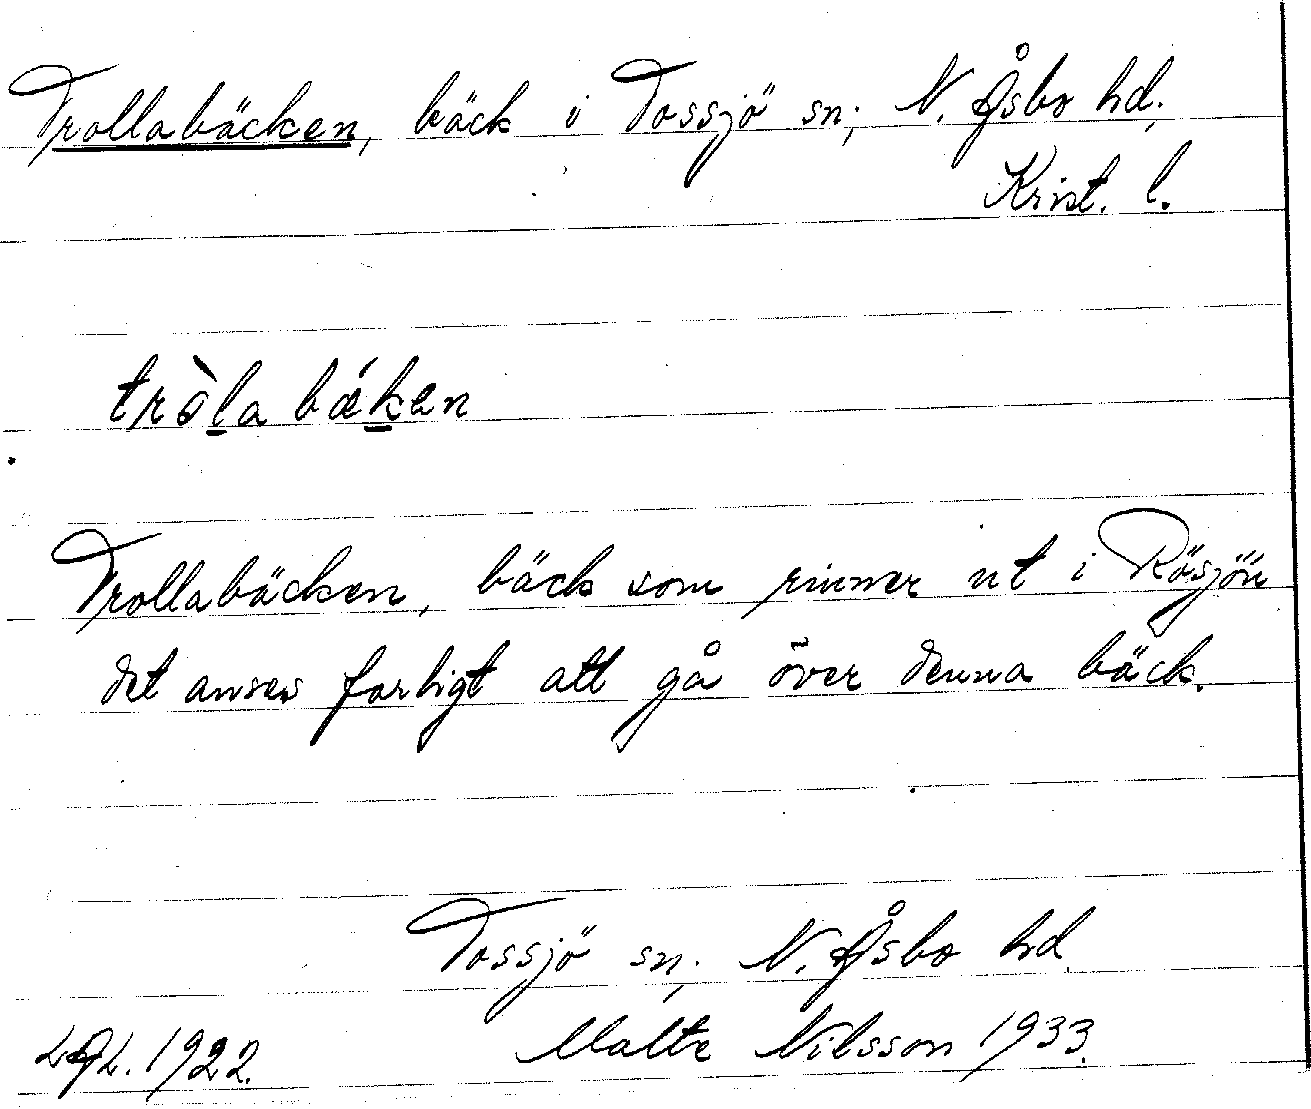 Trollabäcken, bäck i Tossjö sn; N. Åsbo hd;
Krist. l.
tròla bǽken
Trollabäcken, bäck som rinner ut i Rösjön
det anses farligt att gå över denna bäck.
Tossjö sn; N. Åsbo hd.
1922. Malte Nilsson 1933.